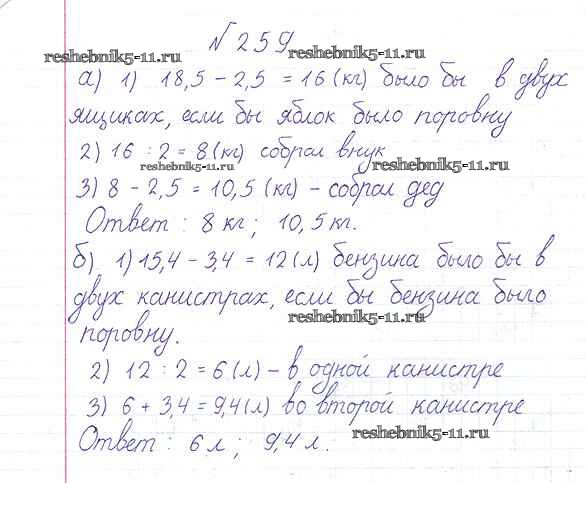 № 259
reshebnik5-11.ru reshebnik5-11.ru
а) 1) 18,5 - 2,5 = 16 (кг) было бы в двух
ящиках, если бы яблок было поровну
2) 16 : 2 = 8 (кг) собрал внук
reshebnik5-11.ru reshebnik5-11.ru
3) 8 - 2,5 = 10,5 (кг) - собрал дед
Ответ : 8 кг ; 10,5 кг.
б) 1) 15,4 - 3,4 = 12 (л) бензина было бы в
двух канистрах, если бы бензина было
reshebnik5-11.ru
поровну.
2) 12 : 2 = 6 (л) - в одной канистре
3) 6 + 3,4 = 9,4 (л) во второй канистре
Ответ : 6 л ; 9,4 л.
reshebnik5-11.ru